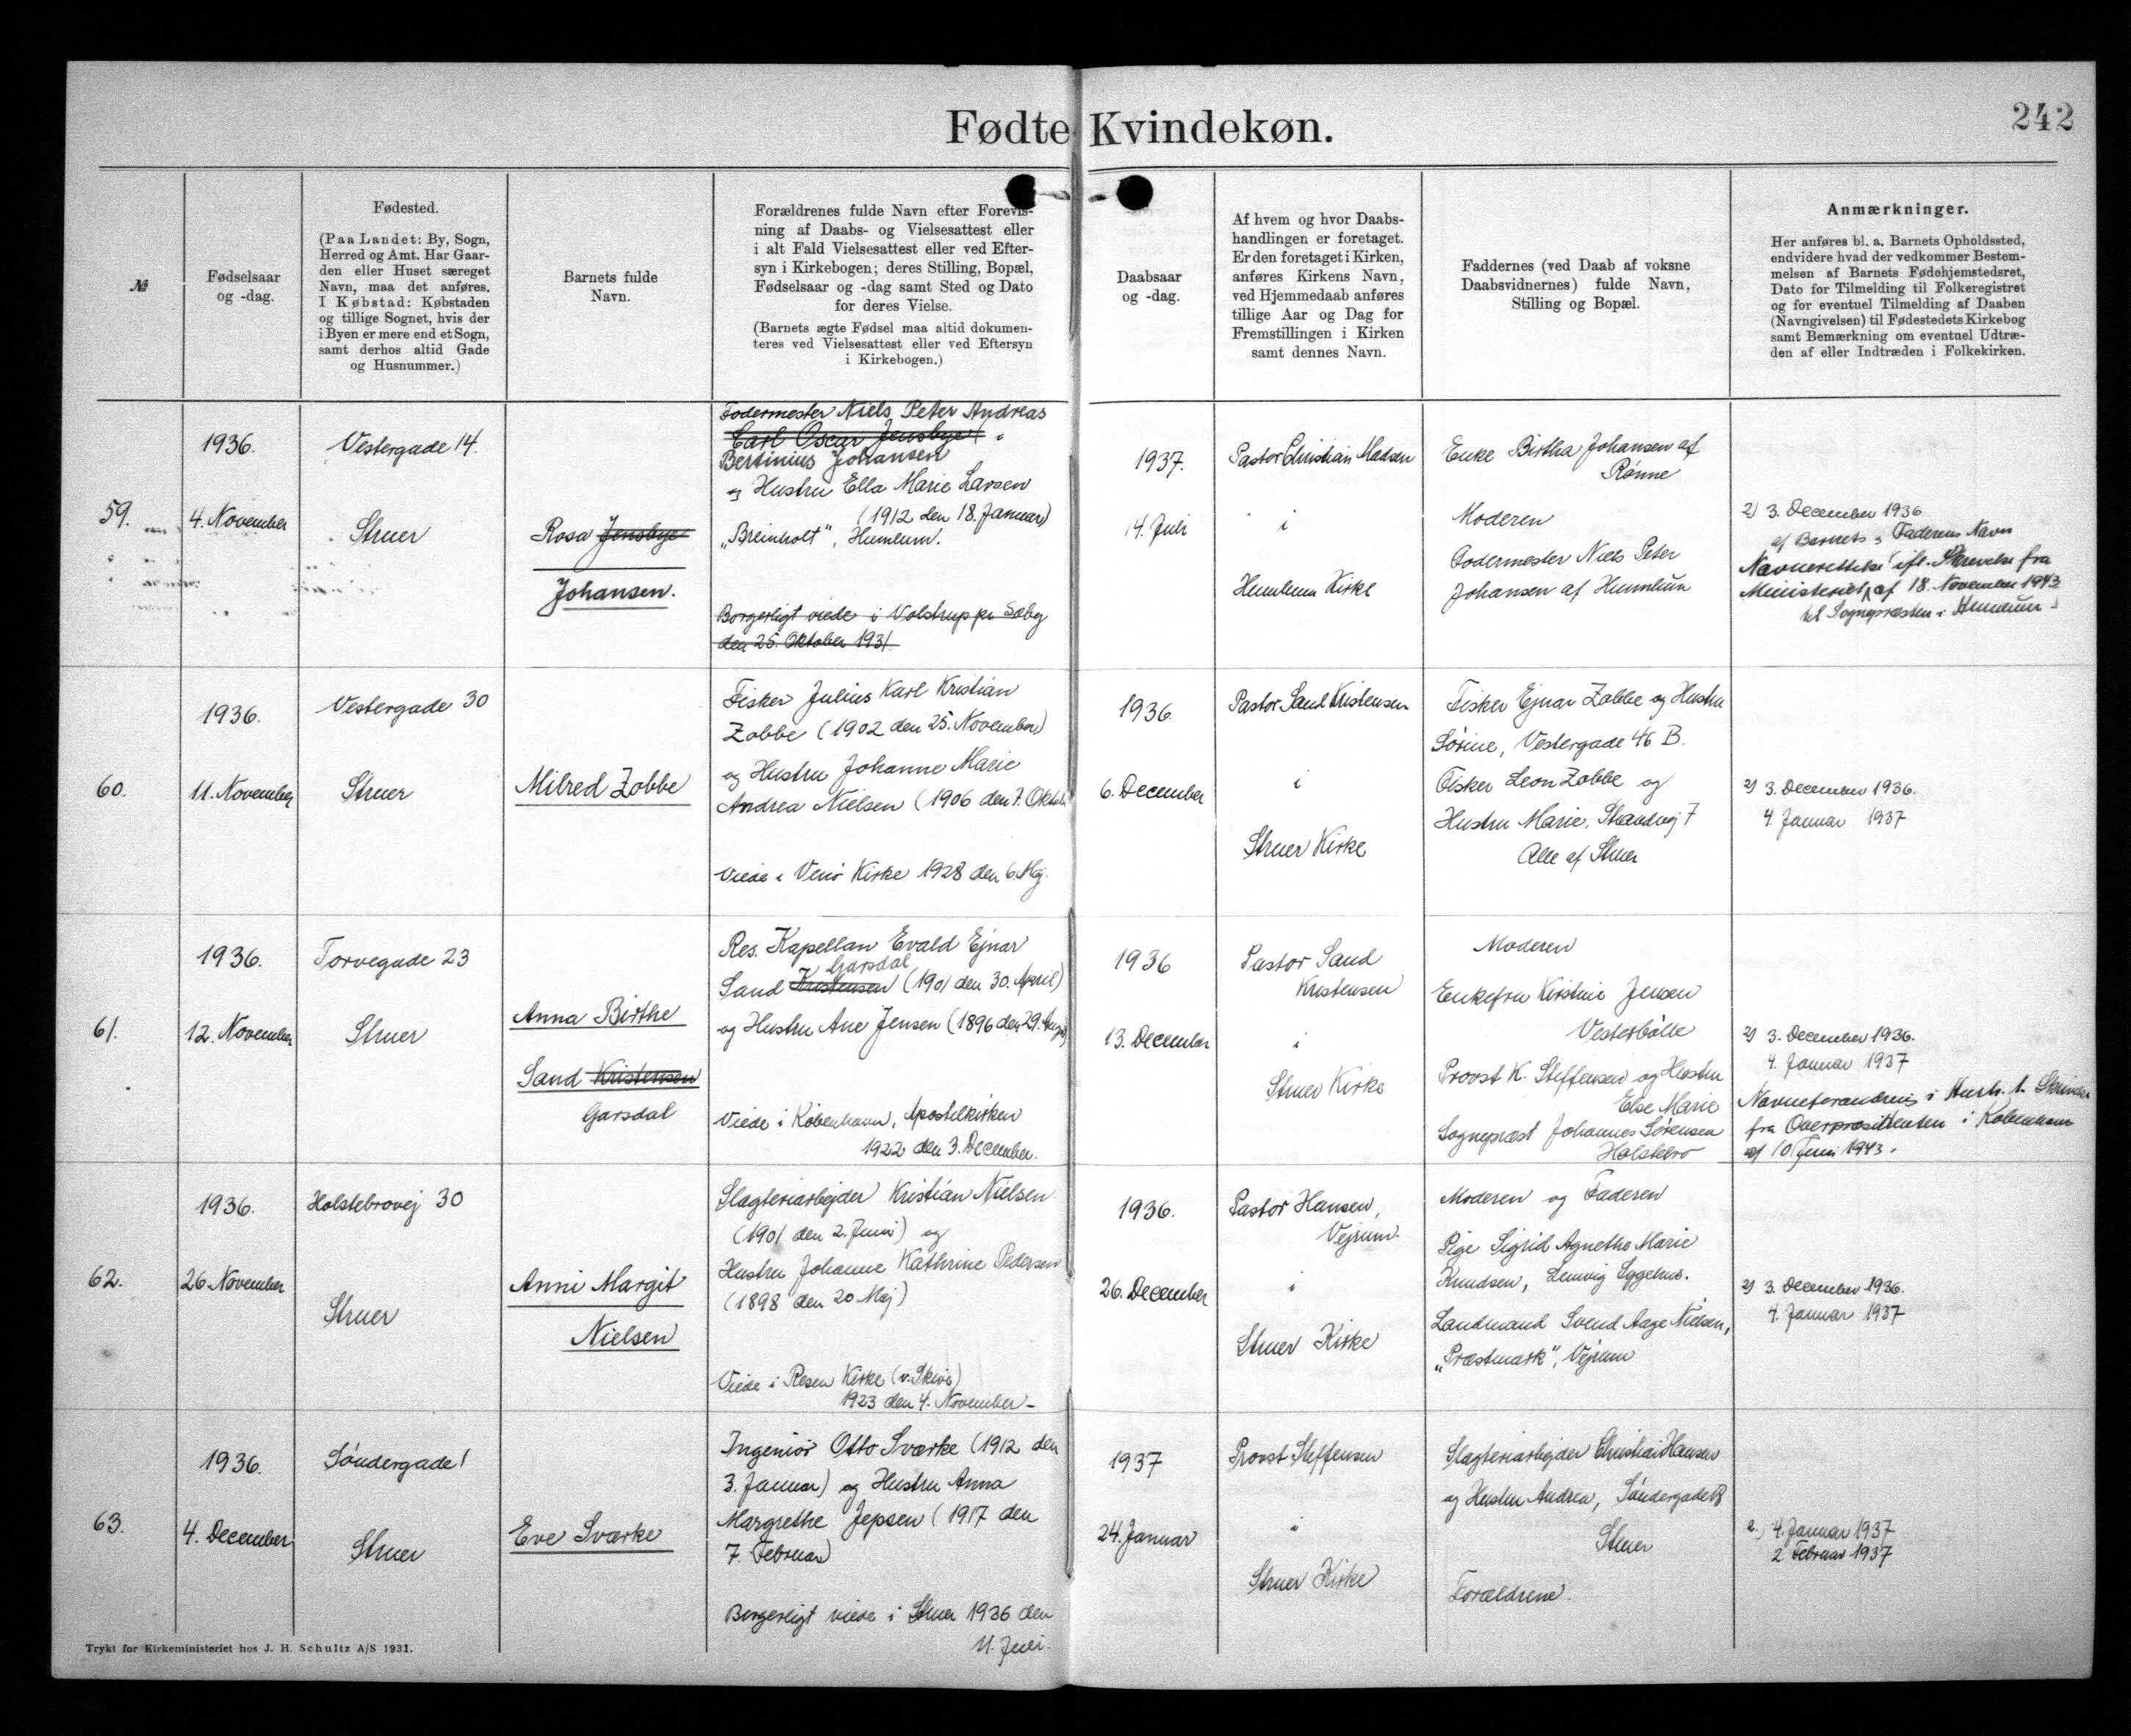 Fødte Kvindekøn.
242
№
Fødselsaar
og -dag.
Fødested.
(Paa Landet: By, Sogn,
Herred og Amt. Har Gaar-
den eller Huset særeget
Navn, maa det anføres.
I Købstad: Købstaden
og tillige Sognet, hvis der
i Byen er mere end et Sogn,
samt derhos altid Gade
og Husnummer.)
Barnets fulde
Navn.
Forældrenes fulde Navn efter Forevis-
ning af Daabs- og Vielsesattest eller
i alt Fald Vielsesattest eller ved Efter-
syn i Kirkebogen; deres Stilling, Bopæl,
Fødselsaar og -dag samt Sted og Dato
for deres Vielse.
(Barnets ægte Fødsel maa altid dokumen-
teres ved Vielsesattest eller ved Eftersyn
i Kirkebogen.)
Daabsaar
og -dag.
Af hvem og hvor Daabs-
handlingen er foretaget.
Er den foretaget i Kirken,
anføres Kirkens Navn,
ved Hjemmedaab anføres
tillige Aar og Dag for
Fremstillingen i Kirken
samt dennes Navn.
Faddernes (ved Daab af voksne
Daabsvidnernes) fulde Navn,
Stilling og Bopæl.
Anmærkninger.
Her anføres bl. a. Barnets Opholdssted,
endvidere hvad der vedkommer Bestem-
melsen af Barnets Fødehjemstedsret,
Dato for Tilmelding til Folkeregistret
og for eventuel Tilmelding af Daaben
(Navngivelsen) til Fødestedets Kirkebog
samt Bemærkning om eventuel Udtræ-
den af eller Indtræden i Folkekirken.
59.
1936.
4. November
Vestergade 14.
Struer
Rosa Jensbye
Johansen.
Fodermester Niels Peter Andreas
Carl Oscar Jensbye
Bertinius Johansen
og Hustru Ella Marie Larsen
(1912 den 18. Januar)
„Breinholt", Humlum.
Borgerligt viede i Volstrup pr. Sæby
den 25. Oktober 1931.
1937.
14. Juli
Pastor Christian Madsen
i
Humlum Kirke
Enke Birtha Johansen af
Rønne
Moderen
Fodermester Niels Peter
Johansen af Humlum
2) 3. December 1936
af Barnets og Faderens Navn
Navnerettelse ifl. Skrivelse fra
Ministeriet af 18. November 1943
til Sognepræsten i Humlum
60.
1936.
11. November
Vestergade 30
Struer
Milred Zobbe
Fisker Julius Karl Kristian
Zobbe (1902 den 25. November)
og Hustru Johanne Marie
Andrea Nielsen (1906 den 7. Oktob
Viede i Venø Kirke 1928 den 6. Maj.
1936.
6. December
Pastor Sand Kristensen
i
Struer Kirke
Fisker Ejnar Zobbe og Hustru
Sørine, Vestergade 46 B.
Fisker Leon Zobbe og
Hustru Marie, Strandvej 7
Alle af Struer
2) 3. December 1936.
4. Januar 1937
61.
1936.
12. November
Torvegade 23
Struer
Anna Birthe
Sand Kristensen
Garsdal
Res. Kapellan Evald Ejnar
Garsdal
Sand Kristensen (1901 den 30. April)
og Hustru Ane Jensen (1896 den 29. August)
Viede i København, Apostelkirken
1922 den 3. December.
1936
13. December
Pastor Sand
Kristensen
i
Struer Kirke
Moderen
Enkefru Kirstine Jensen
Vesterbølle
Provst K. Steffensen og Hustru
Else Marie
Sognepræst Johannes Sørensen
Holstebro
2) 3. December 1936.
4. Januar 1937
Navneforandring i Henh. t. Skrivelse
fra Overpræsidenten i København
af 10 Juni 1943.
62.
1936.
26. November
Holstebrovej 30
Struer
Anni Margit
Nielsen
Slagteriarbejder Kristian Nielsen
(1901 den 2. Juni) og
Hustru Johanne Kathrine Pedersen
(1898 den 20 Maj)
Viede i Resen Kirke (v. Skive)
1923 den 4. November
1936.
26. December
Pastor Hansen,
Vejrum.
i
Struer Kirke
Moderen og Faderen
Pige Sigrid Agnethe Marie
Knudsen, Lemvig Sygehus.
Landmand Svend Aage Nielsen,
„Præstmark", Vejrum
2) 3. December 1936.
4. Januar 1937
63.
1936.
4. December
Søndergade 1
Struer
Eve Sværke
Ingeniør Otto Sværke (1912 den
3. Januar) og Hustru Anna
Margrethe Jepsen (1917 den
7. Februar)
Borgerligt viede i Struer 1936 den
11. Juli.
1937
24. Januar
Provst Steffensen
i
Struer Kirke
Slagteriarbejder Christian Hansen
og Hustru Andrea, Søndergade
Struer
Forældrene.
2.) 4. Januar 1937
2. Februar 1937
Trykt for Kirkeministeriet hos J. H. Schultz A/S 1931.